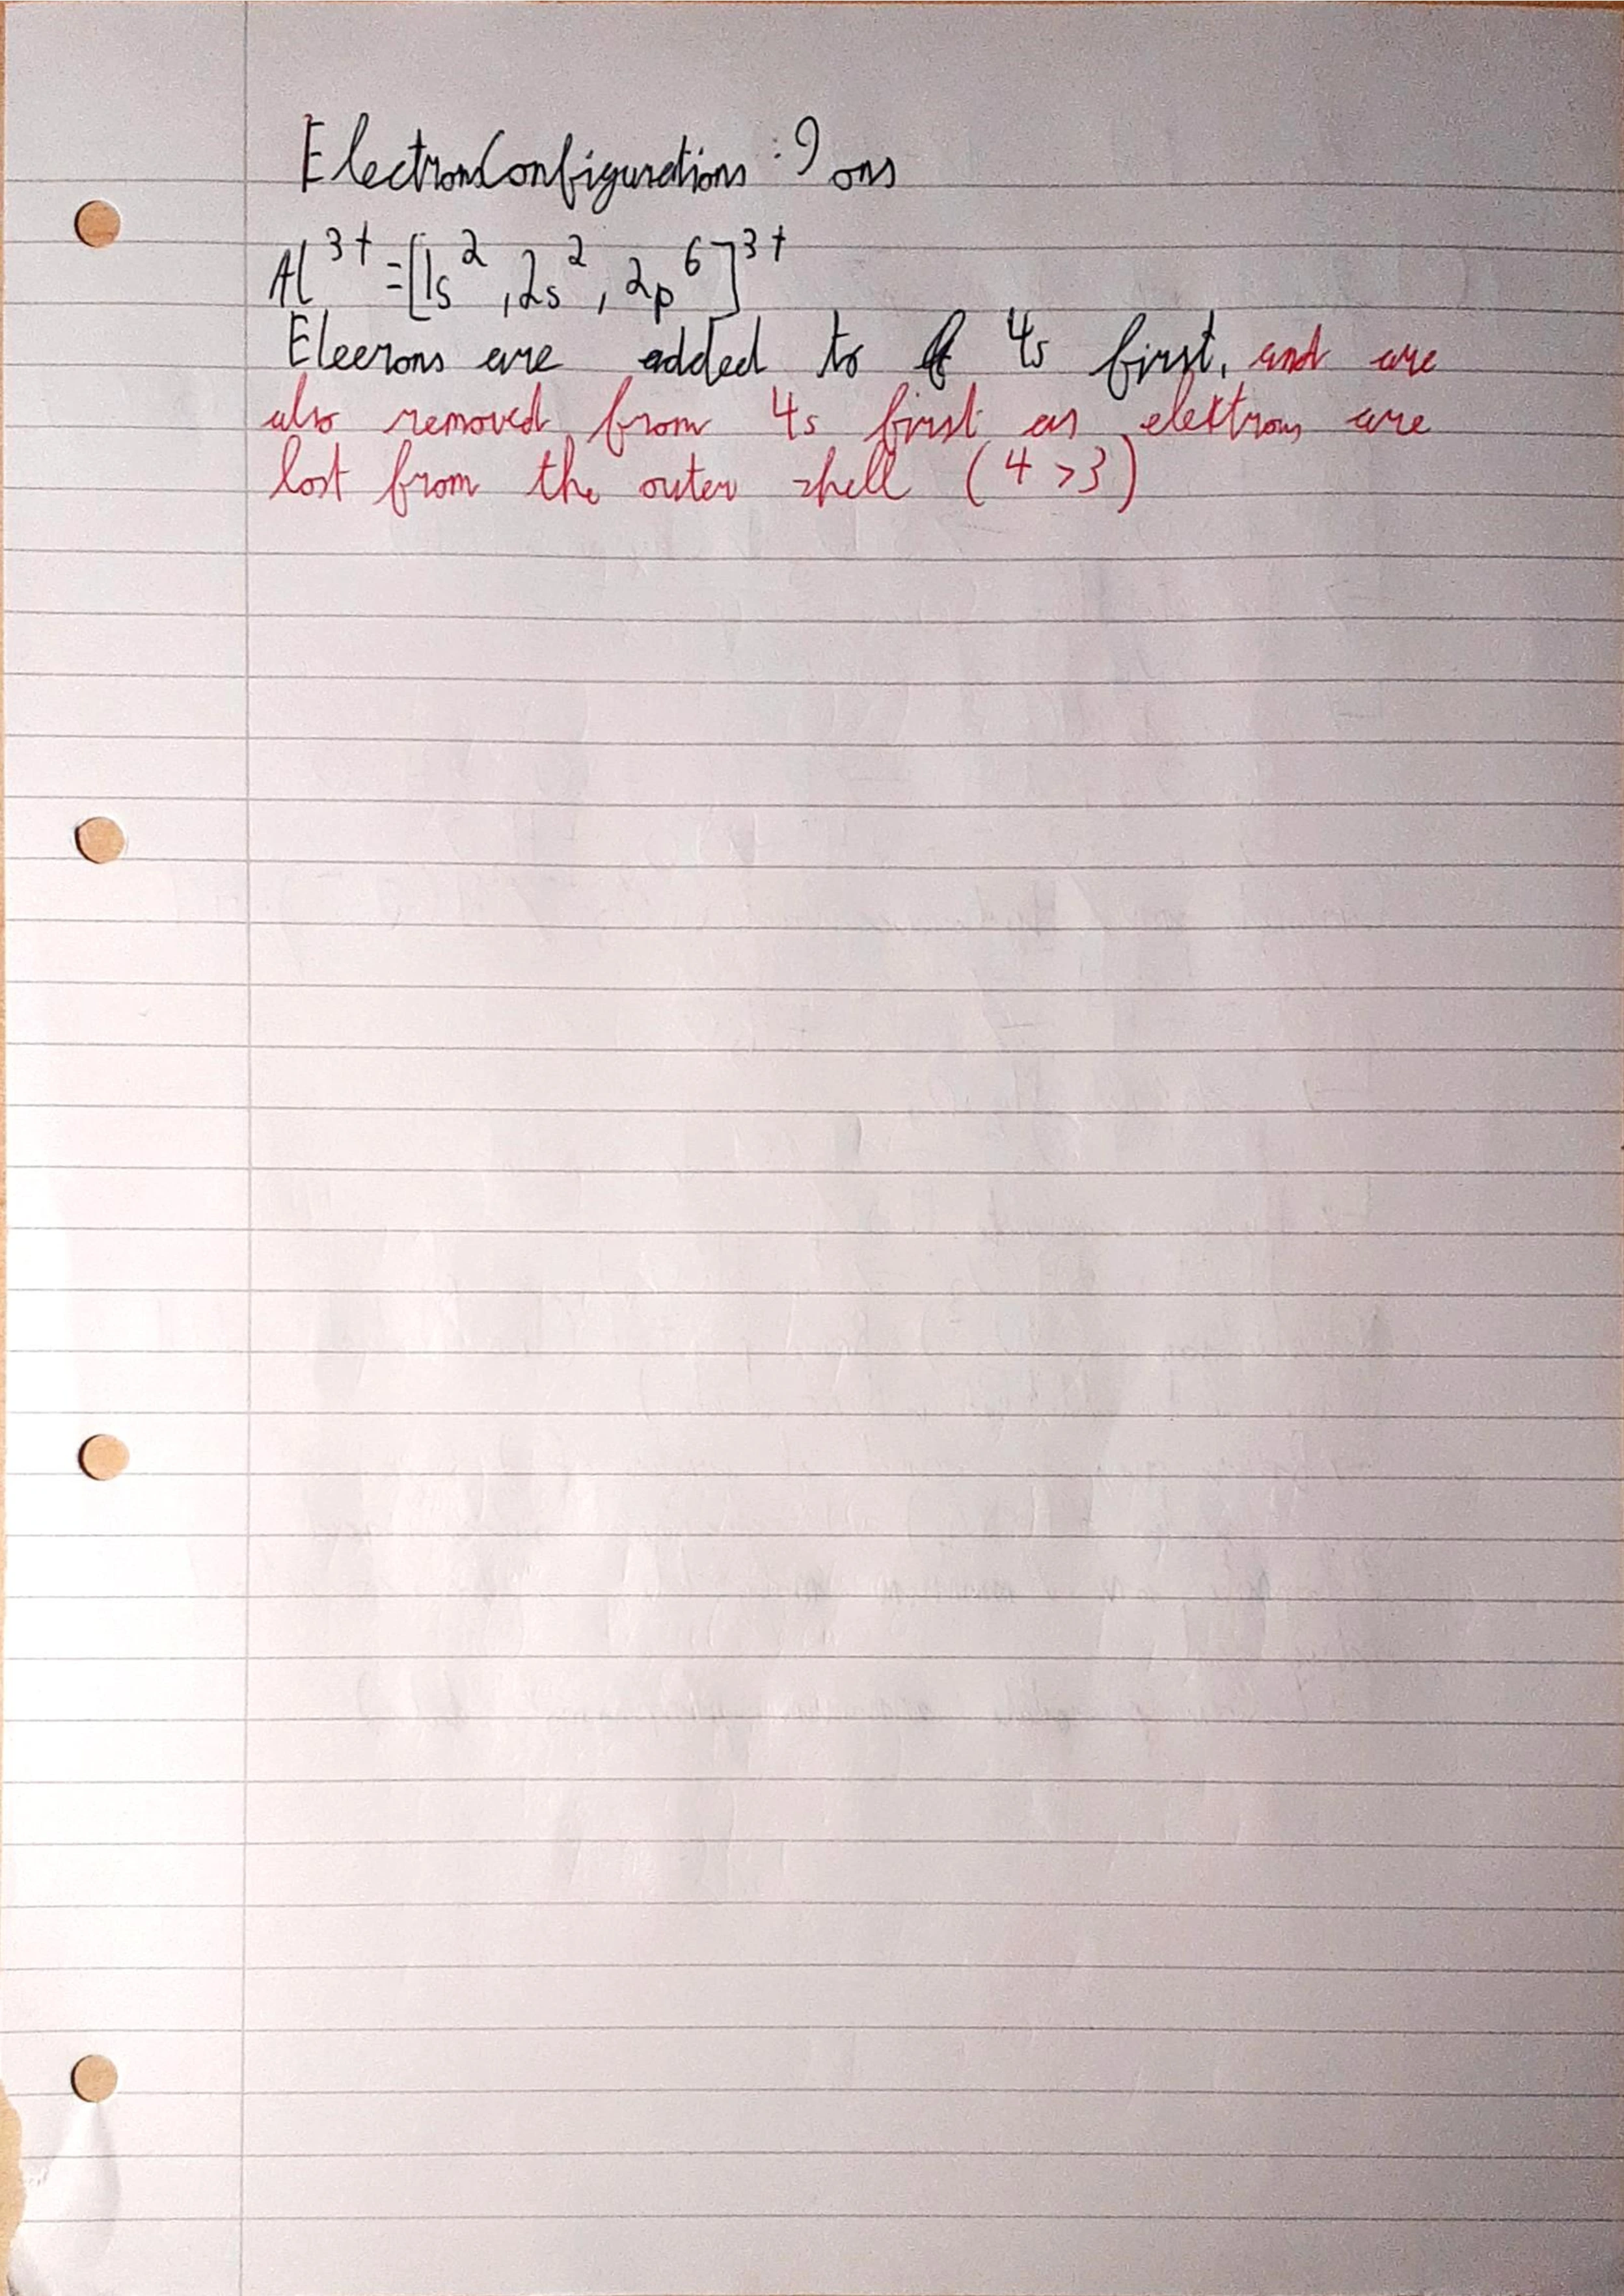 Electron Configurations: Ions
Al³⁺ = [1s², 2s², 2p⁶]³⁺
Elecrons are added to 4s first, and are
also removed from 4s first as elektrons are
lost from the outer shell (4 > 3)